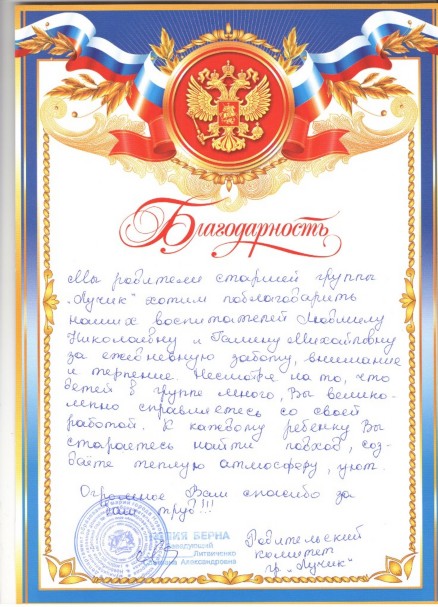 Благодарность
Мы родители старшей группы
„Лучик" хотим поблагодарить
наших воспитателей Людмилу
Николаевну и Галину Михайловну
за ежедневную заботу, внимание
и терпение. Несмотря на то, что
детей в группе много, Вы велико-
лепно справляетесь со своей
работой. К каждому ребенку Вы
стараетесь найти подход, соз-
даёте теплую атмосферу, уют.
Огромное Вам спасибо за
Ваш труд!!!
БЕРНА
Заведующий
Литвиченко
Александровна
Родительский
комитет
гр. „Лучик"